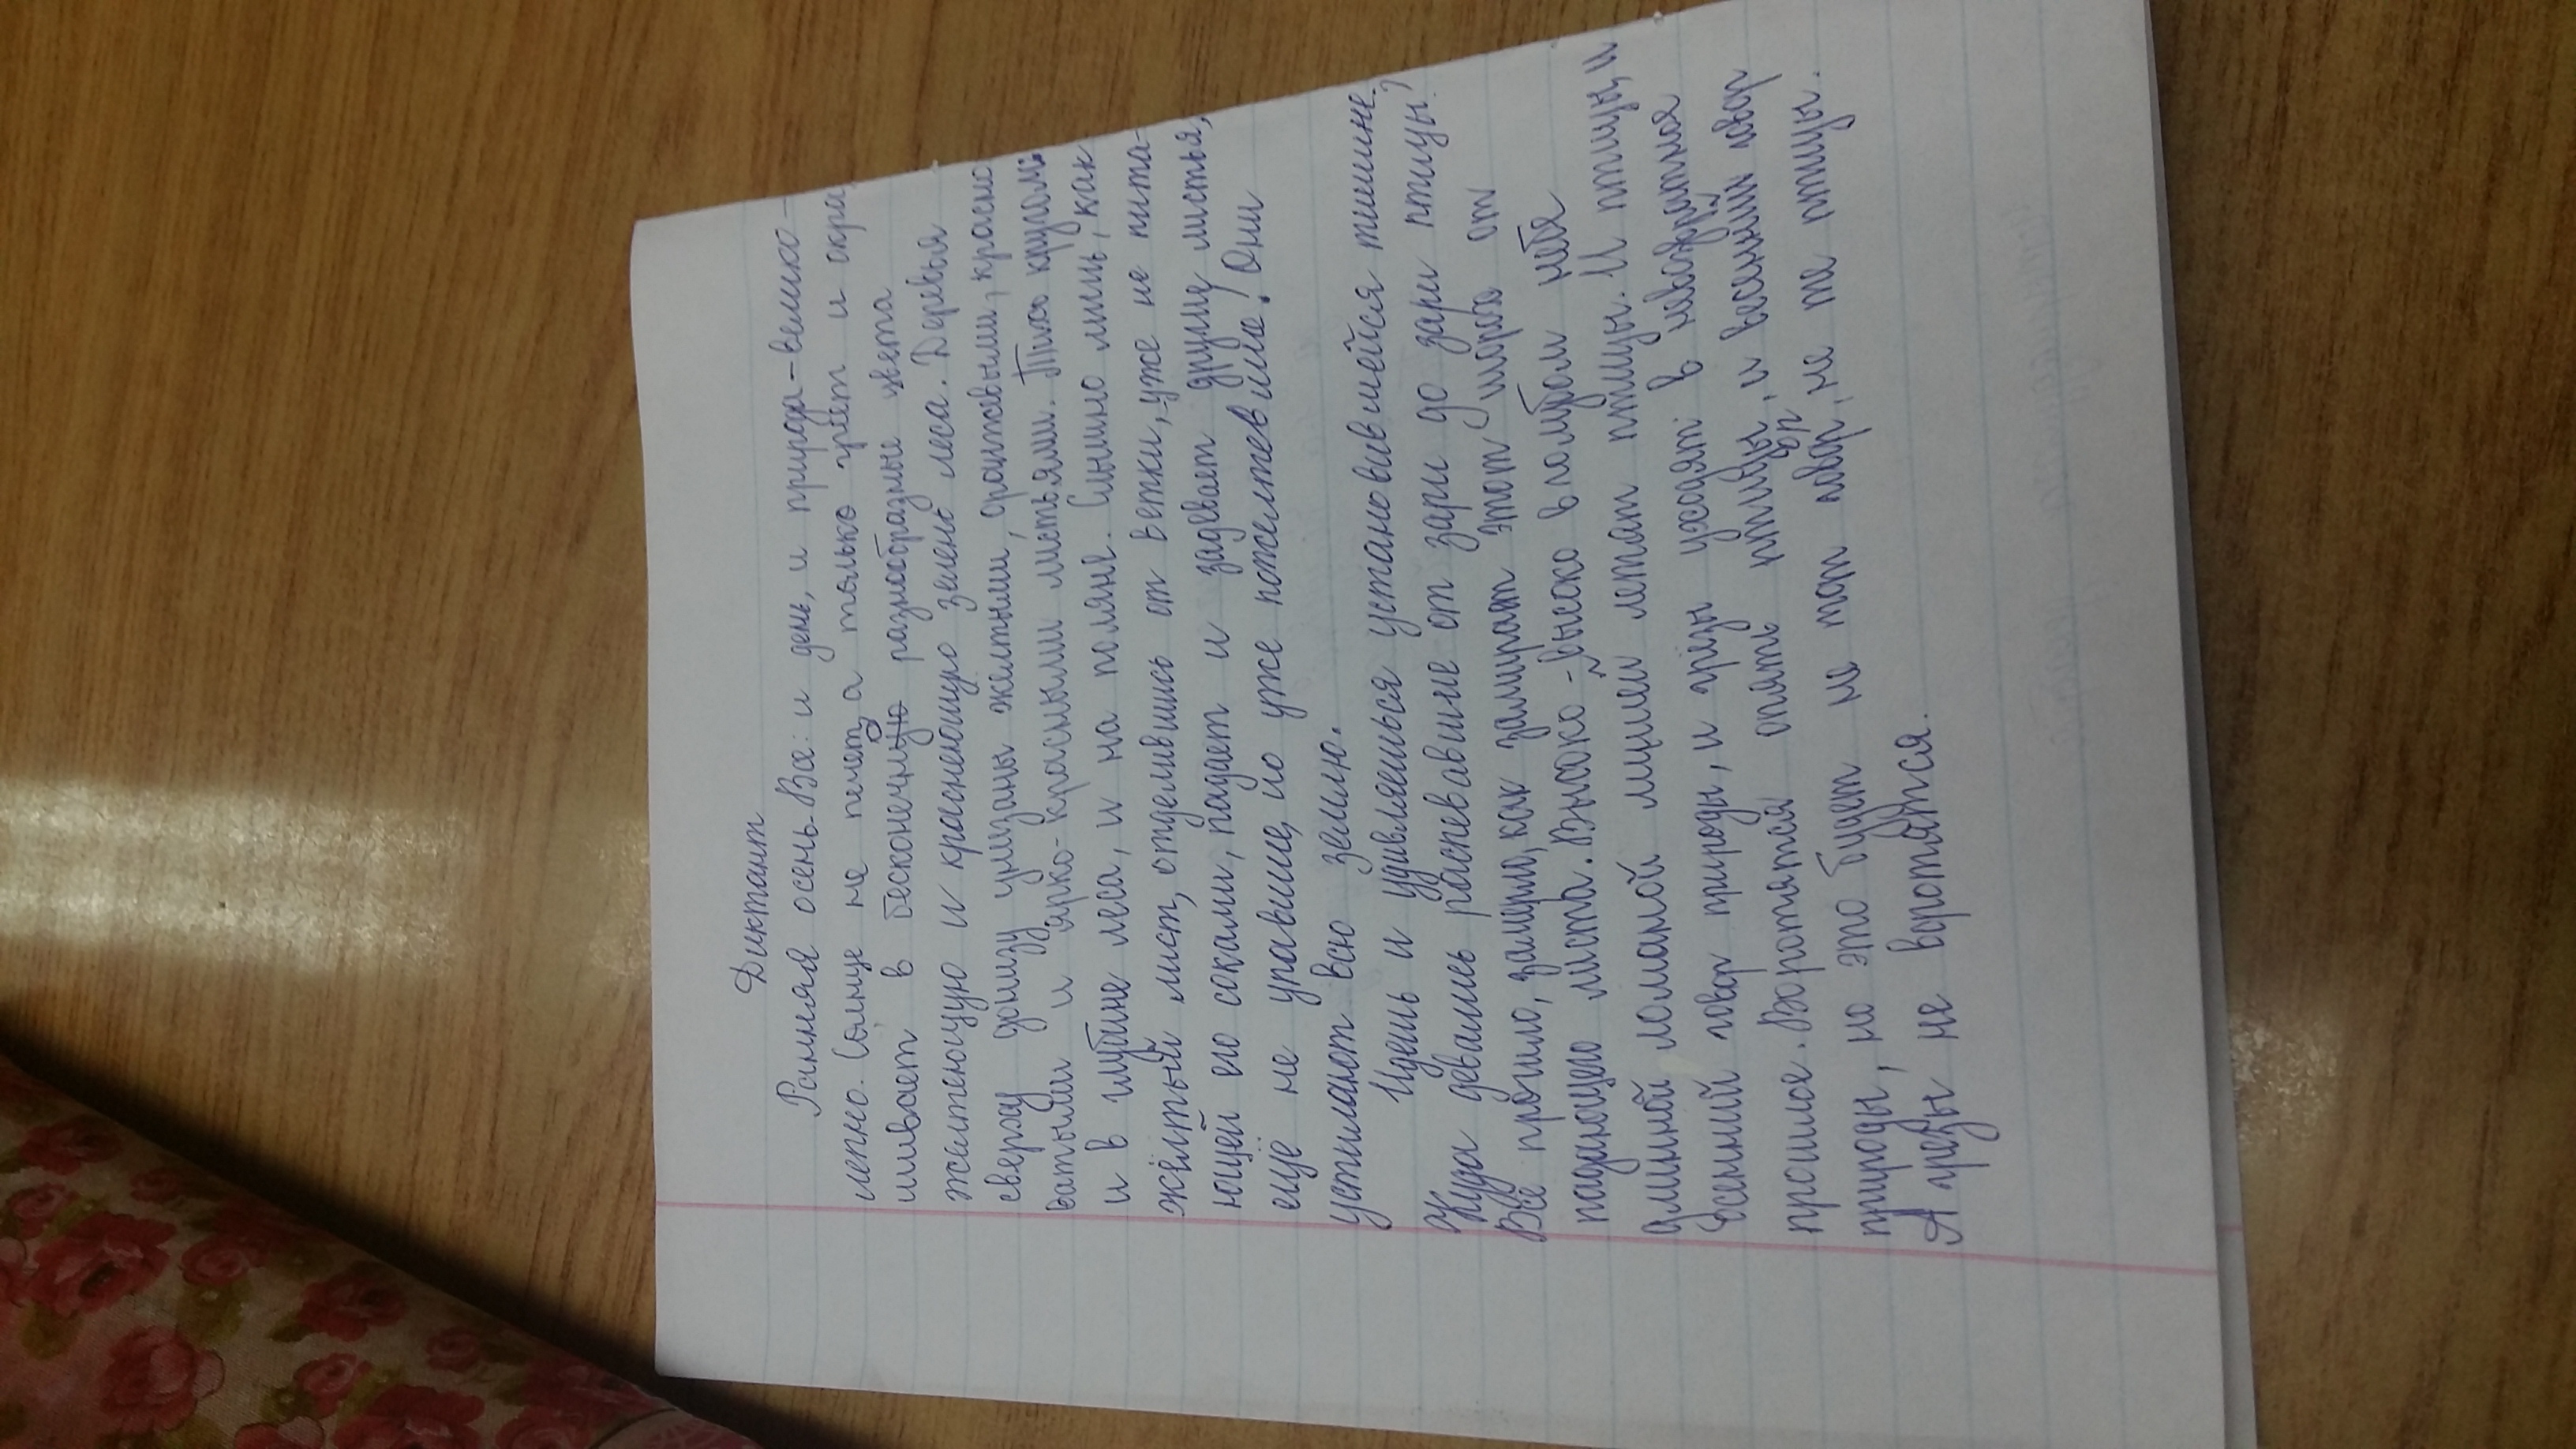 Диктант
Ранняя осень. Все: и день, и природа – велико-
лепно. Солнце не печет, а только греет и окра
шивает в бесконечно разнообразные цвета
желтеющую и краснеющую зелень леса. Деревья
сверху донизу унизаны желтыми, оранжевыми, красно
ватыми и ярко-красными листьями. Тихо кругом:
и в глубине леса, и на поляне. Слышно лишь, как
жёлтый лист, отделившись от ветки, уже не пита-
ющей его соками, падает и задевает другие листья,
еще не упавшие, но уже пожелтевшие. Они
устилают всю землю.
Идешь и удивляешься установившейся тишине.
Куда девались распевавшие от зари до зари птицы?
Всё прошло, замерло, как замирает этот шорох от
падающего листа. Высоко-высоко в голубом небе
длинной ломаной линией летят птицы. И птицы, и
осенний говор природы, и грёзы уходят в невозвратное
прошлое. Воротятся опять птицы, и весенний говор
природы, но это будет не тот говор, не те птицы.
А грезы не воротятся.